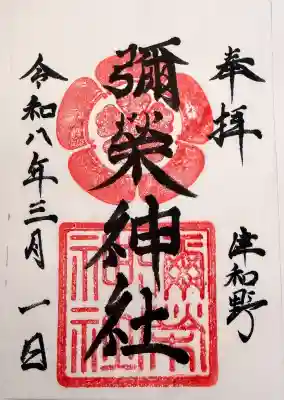 奉拝
津和野
彌榮神社
令和八年三月一日
彌榮
神社